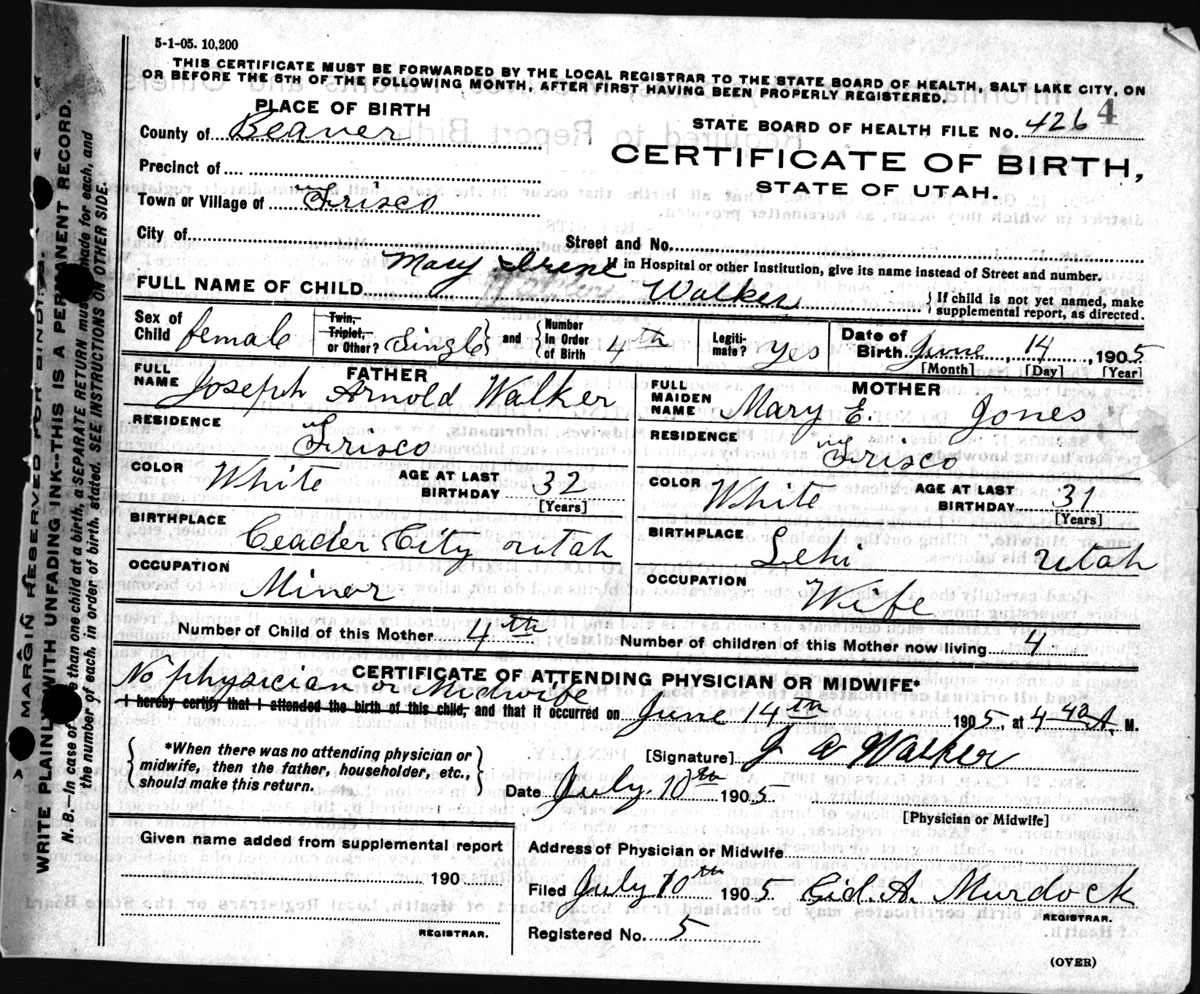 5-1-05. 10,200
THIS CERTIFICATE MUST BE FORWARDED BY THE LOCAL REGISTRAR TO THE STATE BOARD OF HEALTH, SALT LAKE CITY, ON
OR BEFORE THE 5TH OF THE FOLLOWING MONTH, AFTER FIRST HAVING BEEN PROPERLY REGISTERED.
PLACE OF BIRTH
STATE BOARD OF HEALTH FILE NO. 426 4
County of Beaver
CERTIFICATE OF BIRTH,
STATE OF UTAH.
Precinct of
Town or Village of Frisco
City of Street and No.
If in Hospital or other Institution, give its name instead of Street and number.
Mary Irene
FULL NAME OF CHILD Walker { If child is not yet named, make
supplemental report, as directed.
Sex of Child female Twin, Triplet, or Other? Single and Number In Order of Birth 4th Legiti-mate? yes Date of Birth June, 14, 1905
[Month] [Day] [Year]
FATHER
FULL NAME Joseph Arnold Walker
RESIDENCE Frisco
COLOR White AGE AT LAST BIRTHDAY 32
[Years]
BIRTHPLACE Ceader City utah
OCCUPATION Minor
MOTHER
FULL MAIDEN NAME Mary E. Jones
RESIDENCE Frisco
COLOR White AGE AT LAST BIRTHDAY 31
[Years]
BIRTHPLACE Lehi Utah
OCCUPATION Wife
Number of Child of this Mother 4th Number of children of this Mother now living 4
CERTIFICATE OF ATTENDING PHYSICIAN OR MIDWIFE*
No physician or Midwife
I hereby certify that I attended the birth of this child, and that it occurred on June 14th 1905, at 4 40 A. M.
*When there was no attending physician or
midwife, then the father, householder, etc.,
should make this return.
[Signature] J A Walker
Date July. 10th 1905
[Physician or Midwife]
Given name added from supplemental report
190
REGISTRAR.
Address of Physician or Midwife
Filed July 10th 1905 Gid. A. Murdock
REGISTRAR.
Registered No. 5
(OVER)
MARGIN RESERVED FOR BINDING.
WRITE PLAINLY WITH UNFADING INK--THIS IS A PERMANENT RECORD.
N. B.--In case of than one child at a birth, a SEPARATE RETURN must made for each, and
the number of each, in order of birth, stated. SEE INSTRUCTIONS ON OTHER SIDE.